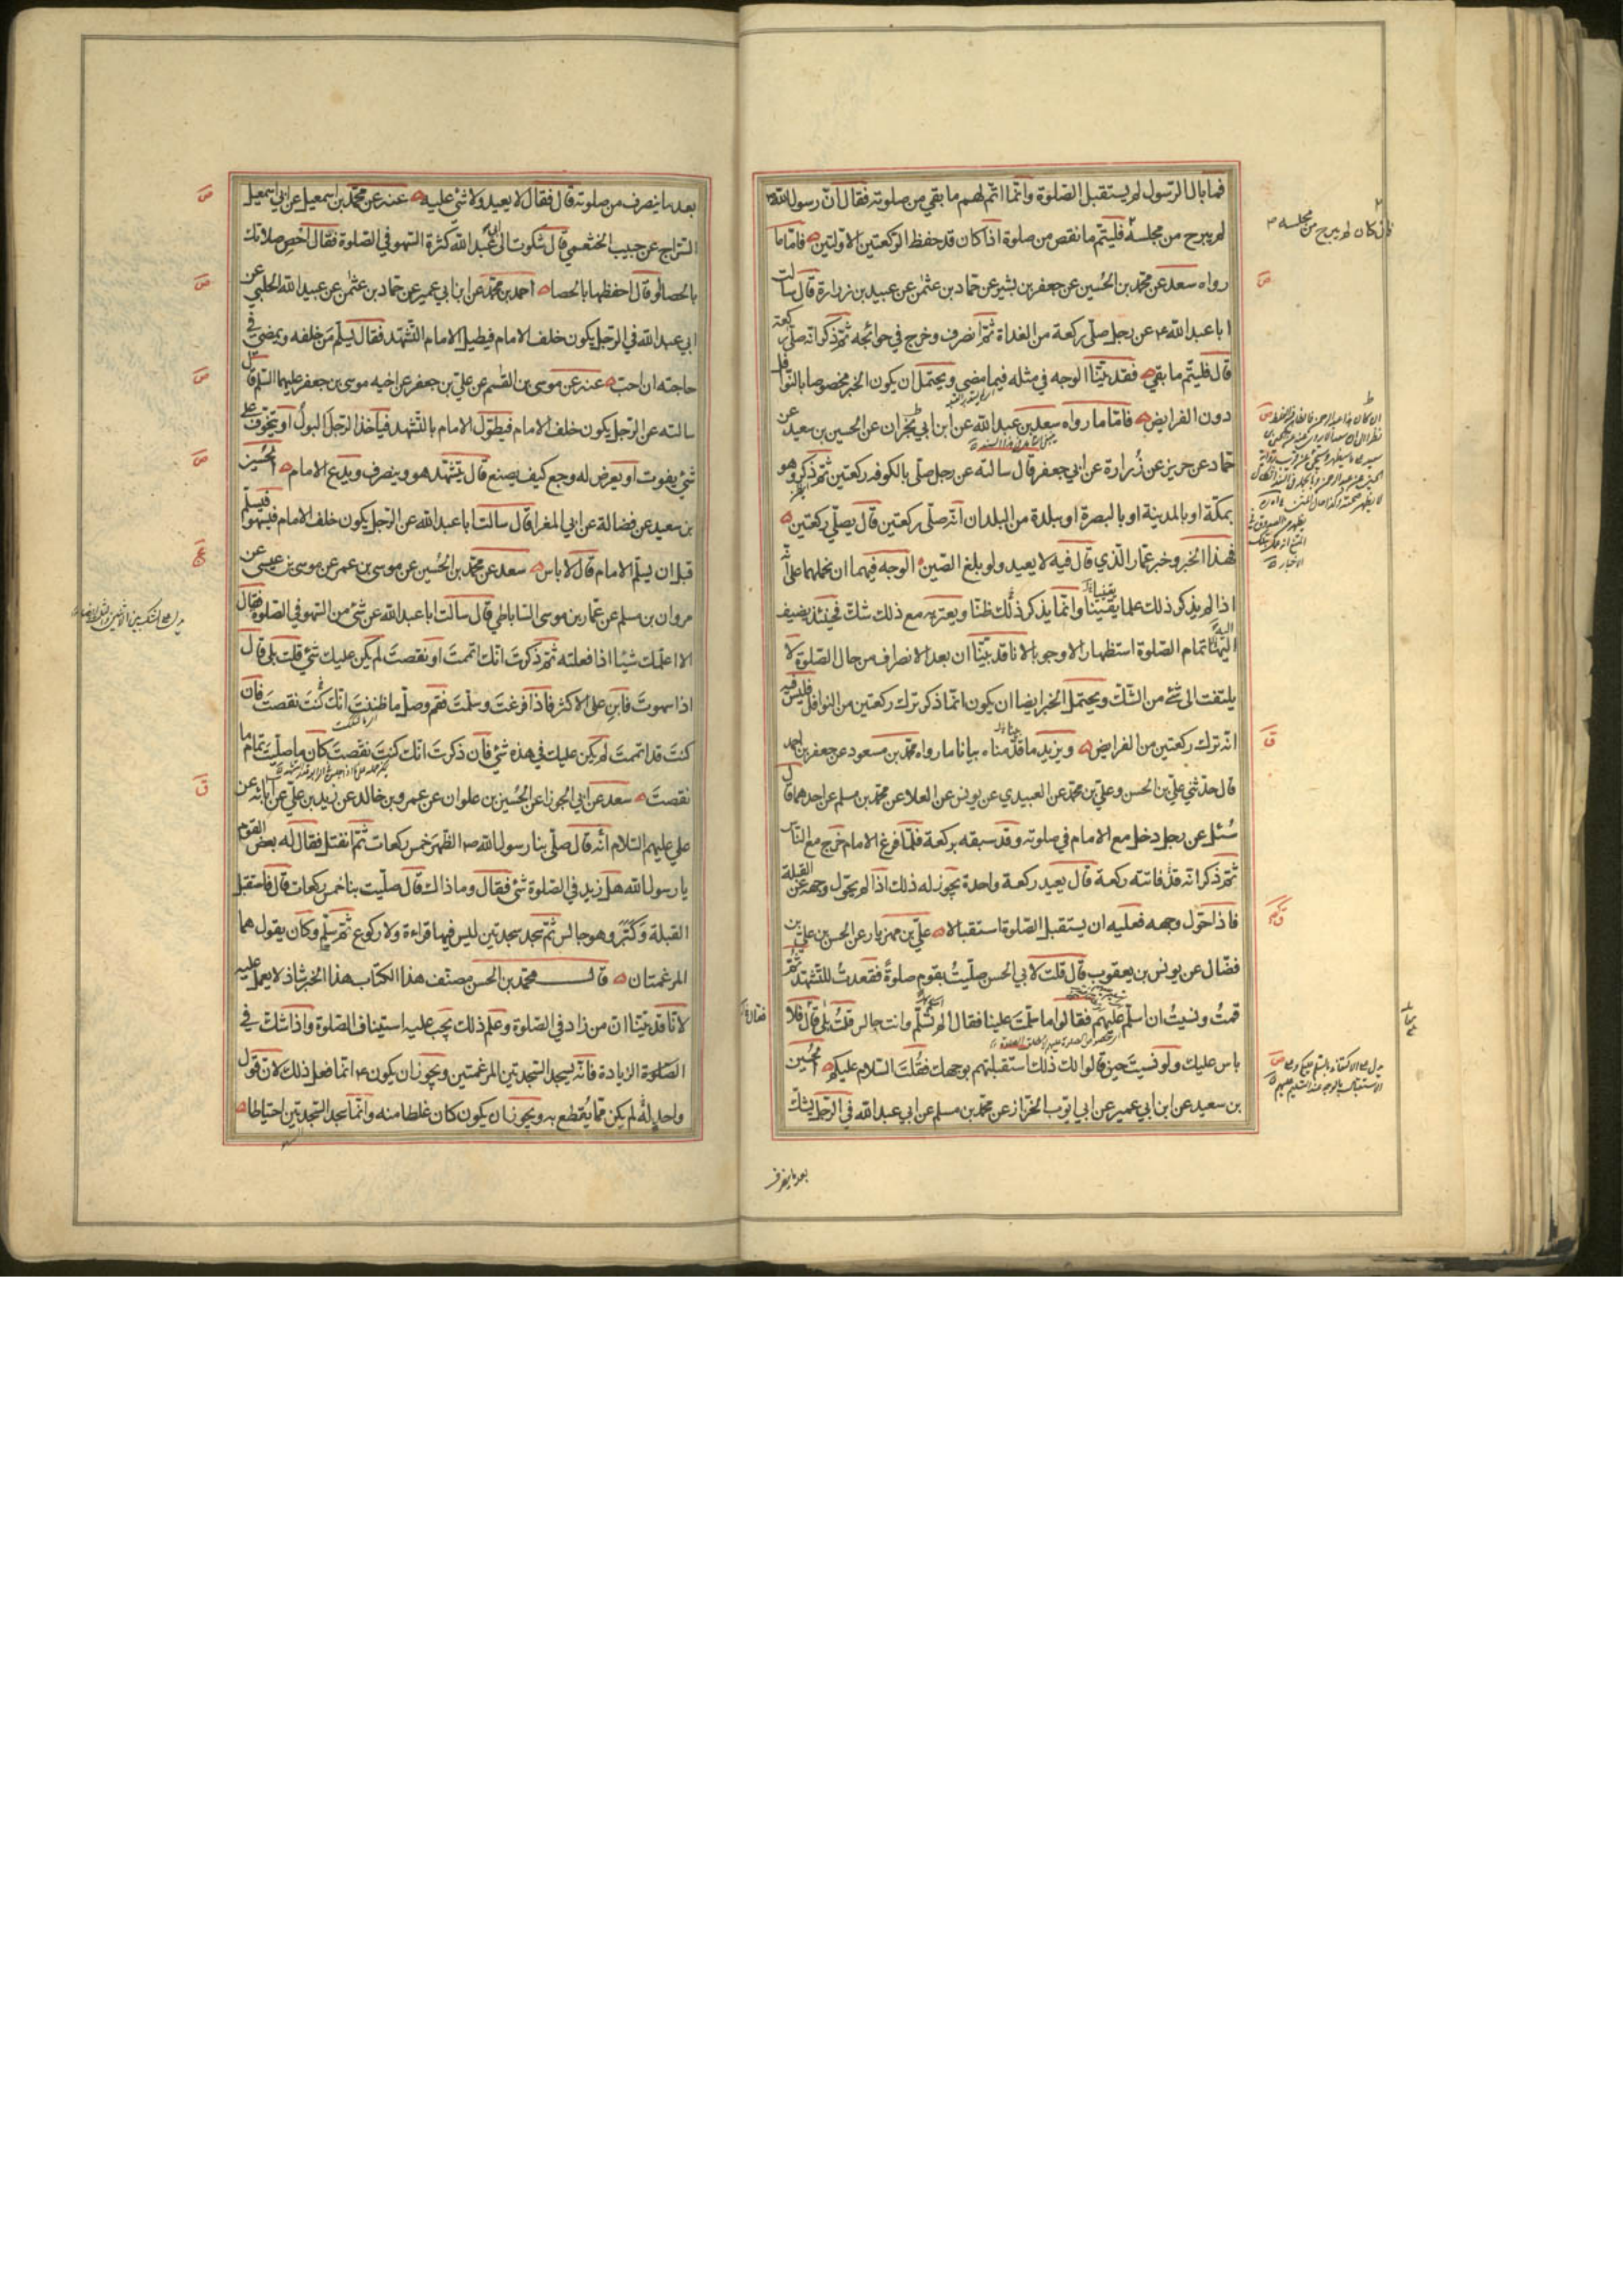 فما بال الرسول لم يستقبل الصلوة وانما اتم لهم ما بقي من صلوته فقال ان رسول الله ص
لم يبرح من مجلسه فليتم ما نقص من صلوة اذا كان قد حفظ الركعتين الاولتين فاما ما
رواه سعد عن محمد بن الحسين عن جعفر بن بشير عن حماد بن عثمن عن عبيد بن زرارة قال سالت
ابا عبد الله ع عن رجل صلى ركعة من الغداة ثم انصرف وخرج في حوائجه ثم ذكر انه صلى ركعة
قال فليتم ما بقي فقد بينا الوجه في مثله فيما مضى ويحتمل ان يكون الخبر مخصوصا بالنوافل
دون الفرايض فاما ما رواه سعد بن عبد الله عن ابن ابي نجران عن الحسين بن سعيد عن
حماد عن حريز عن زرارة عن ابي جعفر قال سالته عن رجل صلى بالكوفه ركعتين ثم ذكر وهو
بمكة او بالمدينة او بالبصرة او ببلدة من البلدان انه صلى ركعتين قال يصلي ركعتين
فهذا الخبر وخبر عمار الذي قال فيه لا يعيد ولو بلغ الصين الوجه فيهما ان نحملهما على انه
اذا لم يذكر ذلك علما يقينا وانما يذكر ذلك ظنا ويعتريه مع ذلك شك فحينئذ يضيف
اليها تمام الصلوة استظهارا لا وجوبا لانا قد بينا ان بعد الانصراف من حال الصلوة لا
يلتفت الى شئ من الشك ويحتمل الخبر ايضا ان يكون انما ذكر ترك ركعتين من النوافل فليس فيه
انه ترك ركعتين من الفرايض ويزيد ما قدمناه بيانا ما رواه محمد بن مسعود عن جعفر بن احمد
قال حدثني علي بن الحسن وعلي بن محمد عن العبيدي عن يونس عن العلا عن محمد بن مسلم عن احدهما قال
سئل عن رجل دخل مع الامام في صلوته وقد سبقه بركعة فلما فرغ الامام خرج مع الناس
ثم ذكر انه قد فاتته ركعة قال يعيد ركعة واحدة يجوز له ذلك اذا لم يحول وجهه عن القبلة
فاذا حول وجهه فعليه ان يستقبل الصلوة استقبالا علي بن مهزيار عن الحسن بن علي بن
فضال عن يونس بن يعقوب قال قلت لابي الحسن صليت بقوم صلوة فقعدت للتشهد ثم
قمت ونسيت ان اسلم عليهم فقالوا ما سلمت علينا فقال الم تسلم وانت جالس قلت بلى قال فلا
باس عليك ولو نسيت حين قالوا لك ذلك استقبلتهم بوجهك فقلت السلام عليكم الحسين
بن سعيد عن ابن ابي عمير عن ابي ايوب الخزاز عن محمد بن مسلم عن ابي عبد الله في الرجل يشك
بعد ما ينصرف
فان كان لم يبرح من مجلسه
بعد ما ينصرف من صلوته قال فقال لا يعيد ولا شئ عليه عنه عن محمد بن اسمعيل عن ابي اسمعيل
السراج عن حبيب الخثعمي قال شكوت الى ابي عبد الله كثرة السهو في الصلوة فقال احص صلاتك
بالحصا او قال احفظها بالحصا احمد بن محمد عن ابن ابي عمير عن حماد بن عثمن عن عبيد الله الحلبي عن
ابي عبد الله في الرجل يكون خلف الامام فيطيل الامام التشهد فقال يسلم من خلفه ويمضي في
حاجته ان احب عنه عن موسى بن القسم عن علي بن جعفر عن اخيه موسى بن جعفر عليهما السلم قال
سالته عن الرجل يكون خلف الامام فيطول الامام بالتشهد فياخذ الرجل البول او يتخوف على
شئ يفوت او يعرض له وجع كيف يصنع قال يتشهد هو وينصرف ويدع الامام الحسين
بن سعيد عن فضالة عن ابي المغرا قال سالت ابا عبد الله عن الرجل يكون خلف الامام فيسهو فيسلم
قبل ان يسلم الامام قال لا باس سعد عن محمد بن الحسين عن موسى بن عمر عن موسى بن عيسى عن
مروان بن مسلم عن عمار بن موسى الساباطي قال سالت ابا عبد الله عن شئ من السهو في الصلوة فقال
الا اعلمك شيئا اذا فعلته ثم ذكرت انك اتممت او نقصت لم يكن عليك شئ قلت بلى قال
اذا سهوت فابن على الاكثر فاذا فرغت وسلمت فقم وصل ما ظننت انك كنت نقصت فان
كنت قد اتممت لم يكن عليك في هذه شئ فان ذكرت انك كنت نقصت كان ما صليت تمام ما
نقصت سعد عن ابي الجوزا عن الحسين بن علوان عن عمرو بن خالد عن زيد بن علي عن ابائه عن
علي عليهم السلام انه قال صلى بنا رسول الله ص الظهر خمس ركعات ثم انفتل فقال له بعض القوم
يا رسول الله هل زيد في الصلوة شئ فقال وما ذاك قال صليت بنا خمس ركعات قال فاستقبل
القبلة وكبر وهو جالس ثم سجد سجدتين ليس فيهما قراءة ولا ركوع ثم سلم وكان يقول هما
المرغمتان قال محمد بن الحسن مصنف هذا الكتاب هذا الخبر شاذ لا يعمل عليه
لانا قد بينا ان من زاد في الصلوة وعلم ذلك يجب عليه استيناف الصلوة واذا شك في
الصلوة الزيادة فانه يسجد السجدتين المرغمتين ويجوز ان يكون ع انما فعل ذلك لان قول
واحد له لم يكن مما يقطع به ويجوز ان يكون كان غلطا منه وانما سجد السجدتين احتياطا